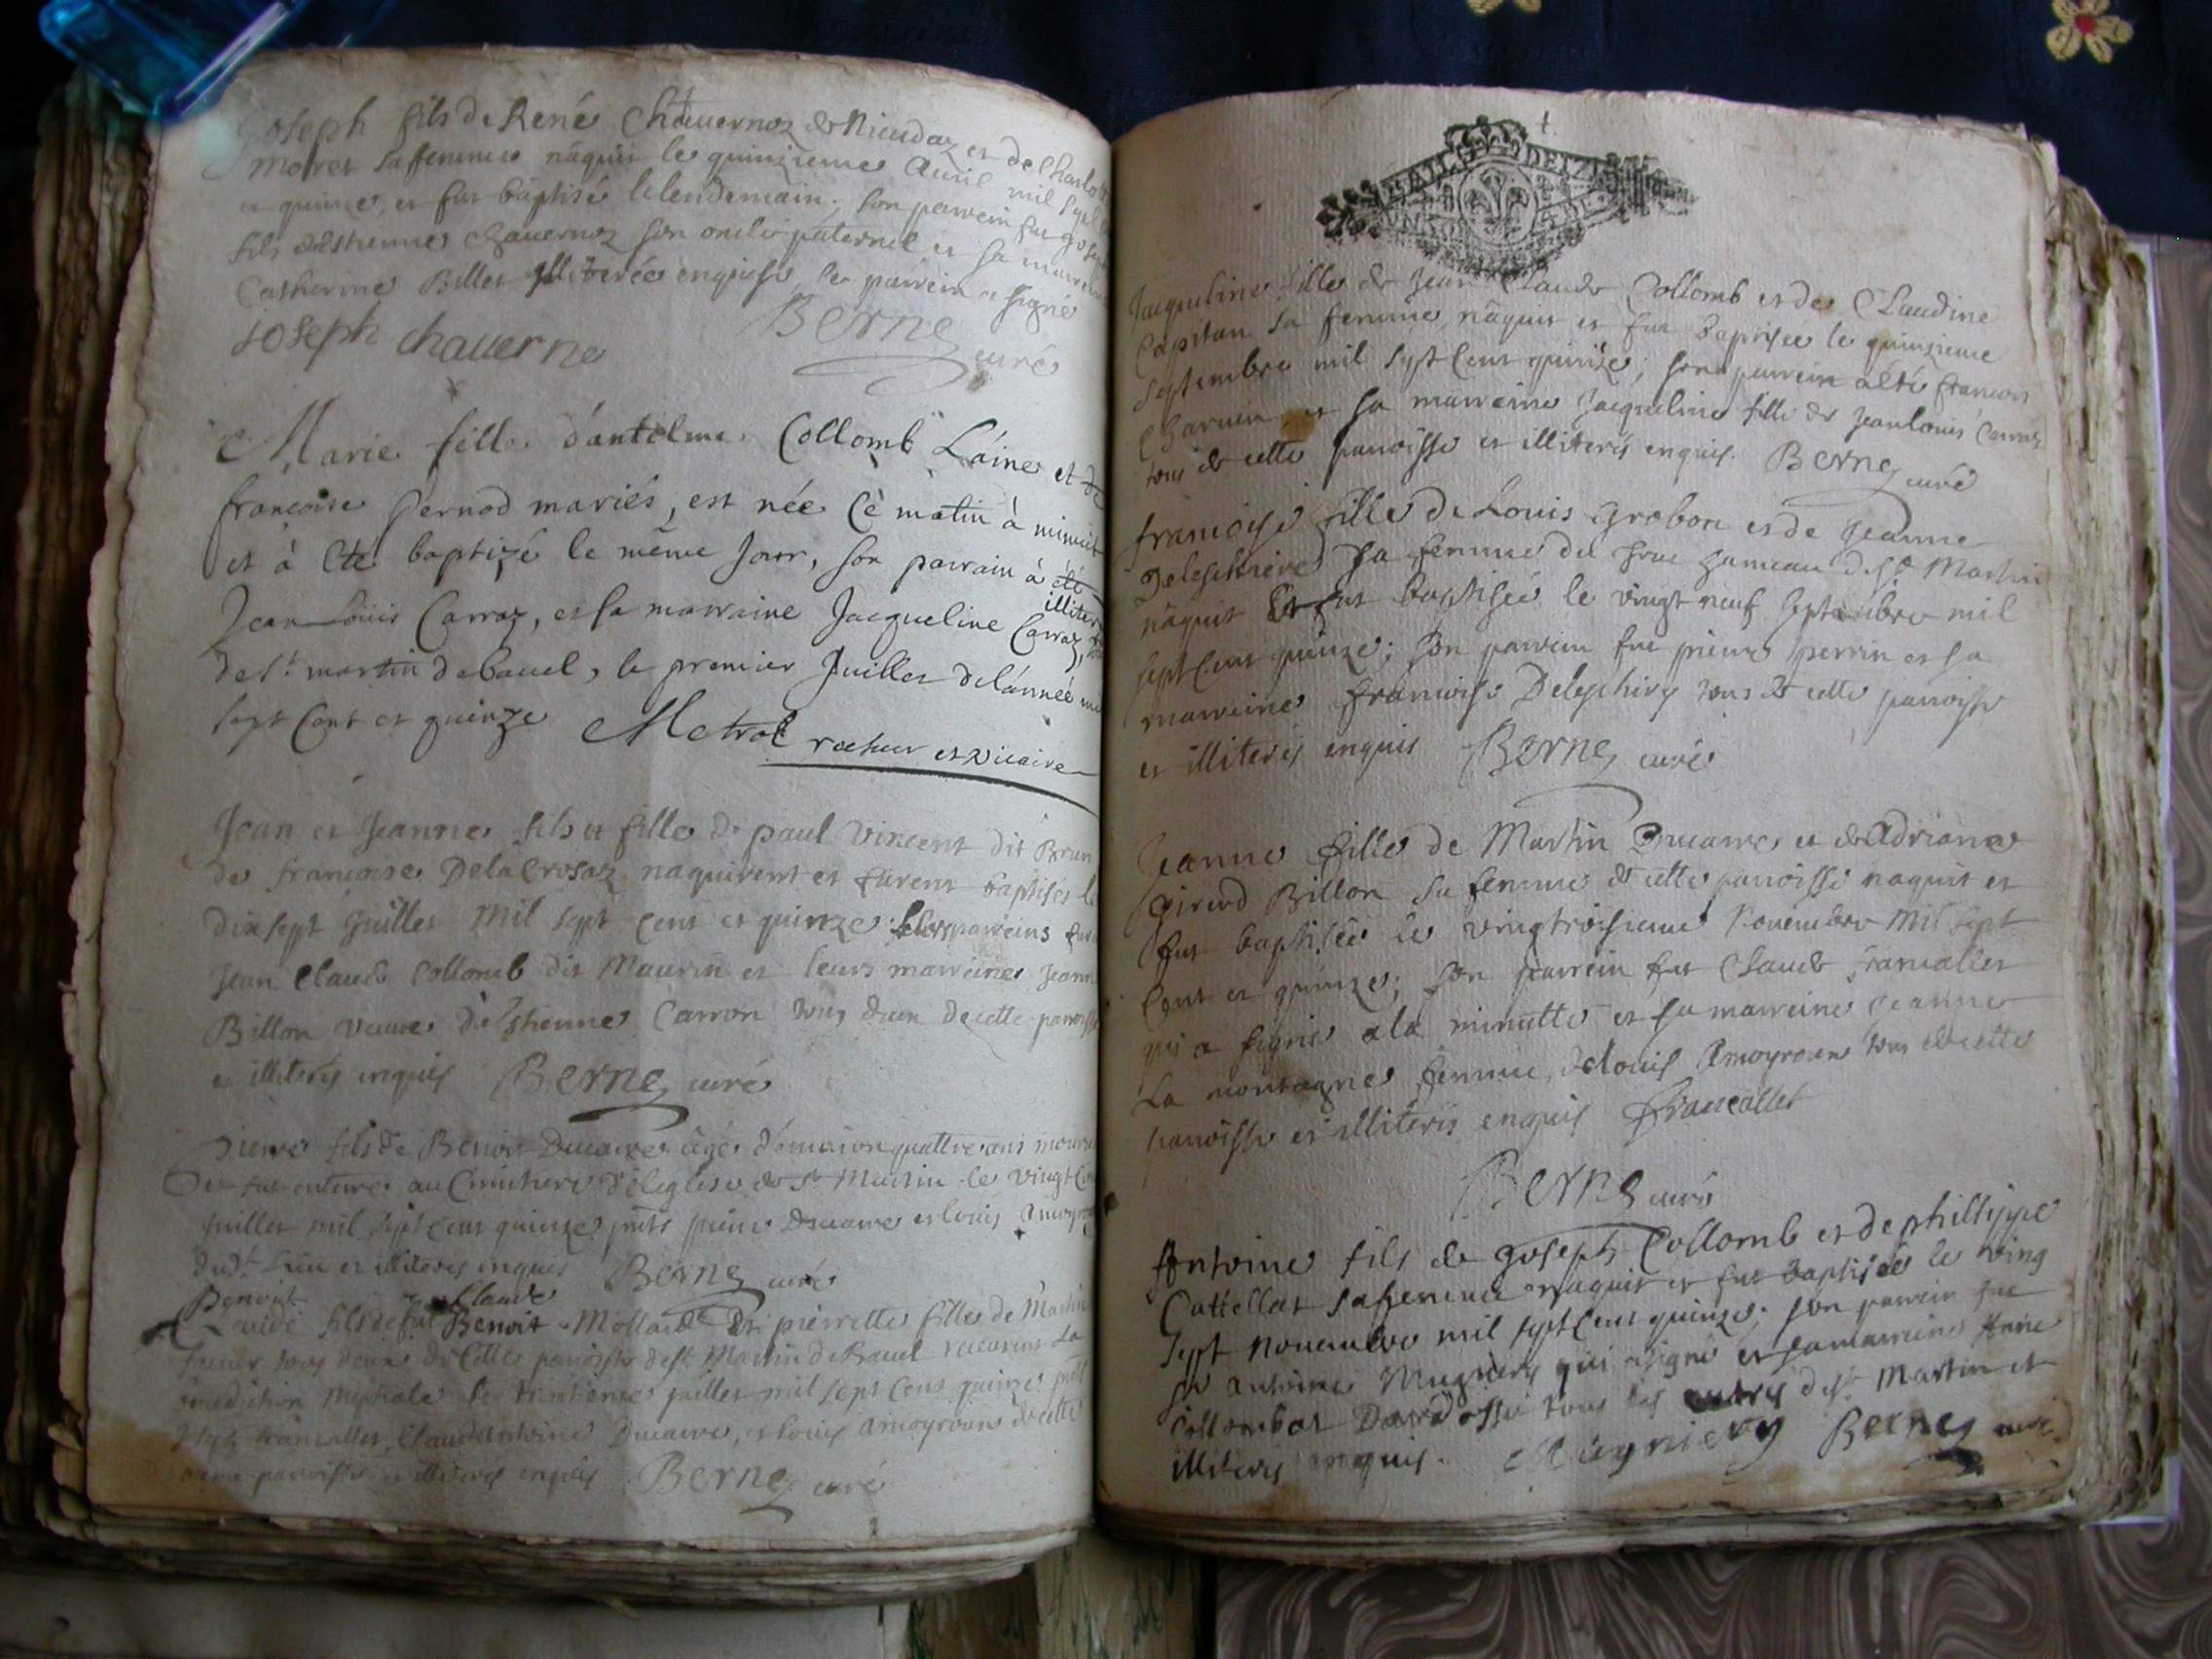 Joseph fils de René Chavernoz de et de Charlo
Moret sa femme nâquit le quinzieme Avril mil sept
et quinze, et fut baptisé le lendemain; son parrein fut Jos
fils d'Esthienne Chavernoz son oncle paternel et sa marre
Catherine Billet illiterée enquise, le parrein a signé
Joseph chaverno Berne curé
Marie fille d'antelme Collomb L'áine et de
francoise Pernod mariés, est née cè matin à minuit
et à été baptizé le même Jour, son parrain à été
illiter
Jean Loüis Carraz, et sa marraine Jacqueline Carraz,
de st martin de bavel, le premier Juillet de l'année mi
sept Cent et quinze Metral recteur et vicaire
Jean et Jeanne fils et fille de paul Vincent dit Brun
de francoise Delacrosaz naquirent et furent baptisés le
dix sept Juillet Mil sept cent et quinze leurs parreins fur
Jean Claude Collomb dit Maurin et leurs marreines Jeann
Billon veuve d'Esthienne Carron tous deux de cette paroisse
et illiterés enquis Berne curé
pierre fils de Benoit Ducarre âgé d'environ quattre ans mouru
et fut enterré au Cimithiere de leglise de St Martin le vingt
juillet mil sept cent quinze pnts pierre Ducarre et louis Amoyr
dudt Lieu et illiteres enquis Berne curé
Benoit Claude
fils de feu Benoit Mollard et pierrette fille de Martin
tous deux de Cette paroisse de st Martin de Bavel receurent La
benediction Nuptiale le trentieme juillet mil sept Cent quinze pnts
francallet, Claude Antoine Ducarre, et louis amoyroux de cette
même paroisse et illiterés enquis Berne curé
Jacqueline fille de Jean Claude Collomb et de Claudine
Capitan sa femme, nâquit et fut Baptisée le quinzieme
Septembre mil sept Cent quinze; son parrein a été francois
Charvin et sa marreine Jacqueline fille de Jean louis Carraz
tous de cette paroisse et illiterés enquis. Berne curé
francoise fille de Louis Grobon et de Jeanne
sa femme du hameau de st Martin
nâquit Et fut baptisée le vingt neuf Septembre mil
sept Cent quinze; son parrein fut pierre perrin et sa
marreine francoise tous de cette paroisse
et illiterés enquis Berne curé
Jeanne fille de Martin Ducarre et de Adriane
Girerd Billon sa femme de cette paroisse naquit et
fut baptisée le vingtroisieme Novembre Mil sept
Cent et quinze; son parrein fut Claude francallet
qui a signé a la minutte et sa marreine Jeanne
La montagne femme de louis Amoyroux tous de cette
paroisse et illiterés enquis francallet
Berne curé
Antoine fils de Joseph Collomb et de phillippe
Cattellat sa femme naquit et fut Baptisée le ving
sept novembre mil sept Cent quinze; son parrein fut
sr Antoine Mugniery qui a signé et sa marreine Anne
tous les autres de st Martin et
illiteres enquis. Mugniery Berne curé